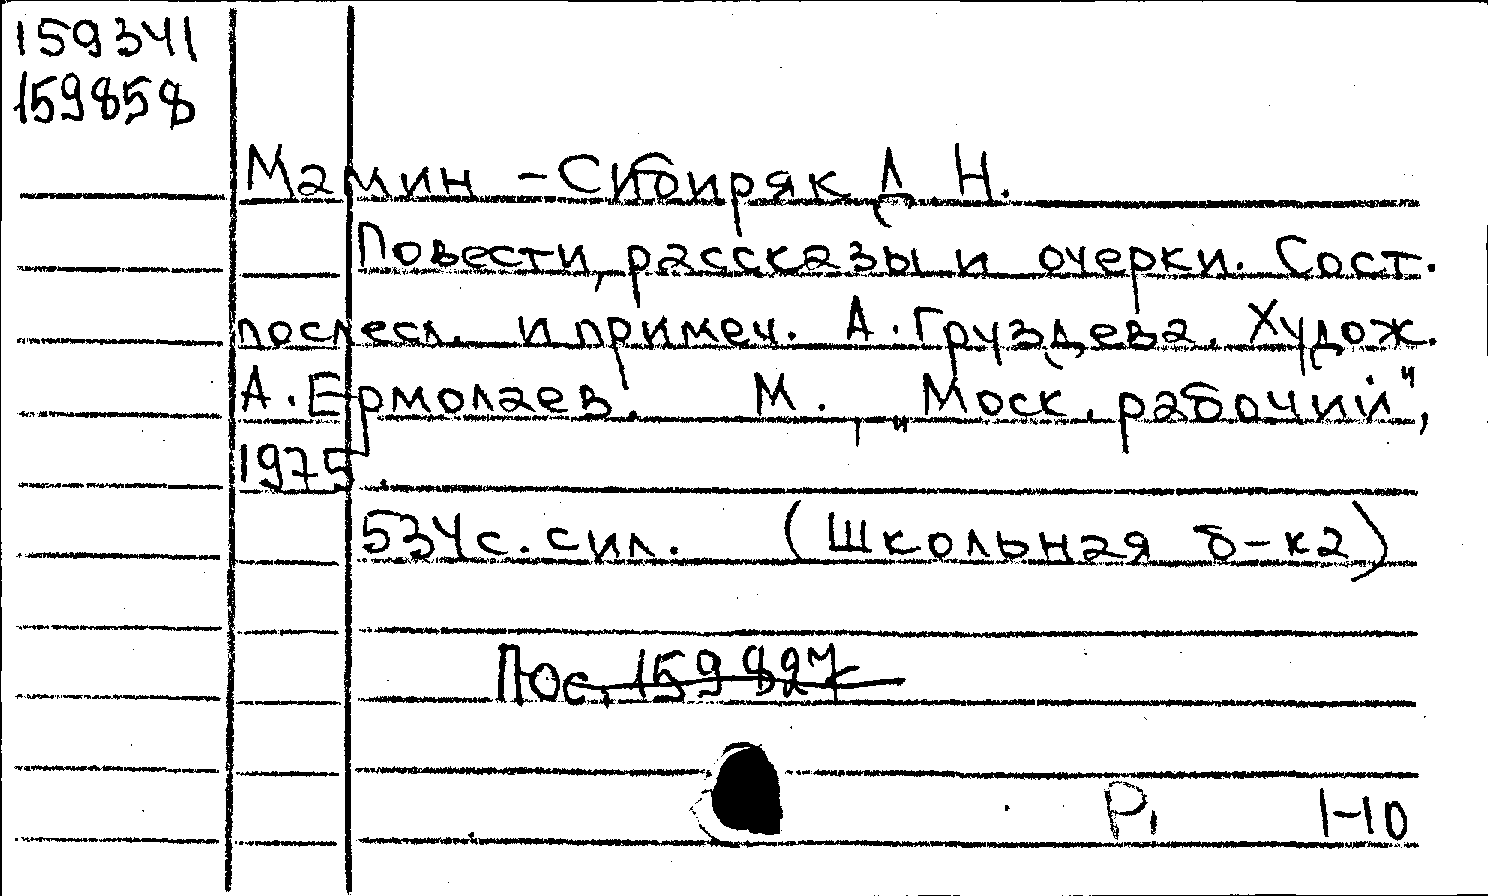 159341
159858
Мамин-Сибиряк Д Н.
Повести, рассказы и очерки. Сост.
послесл. и примеч. А. Груздева. Худож.
А. Ермолаев. М., „Моск. рабочий",
1975.
534 с. с ил. (Школьная б-ка)
Пос. 159827
P1 1-10